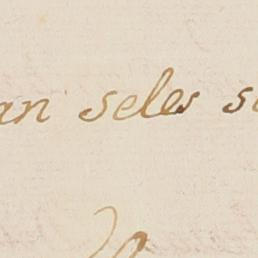 an seles s